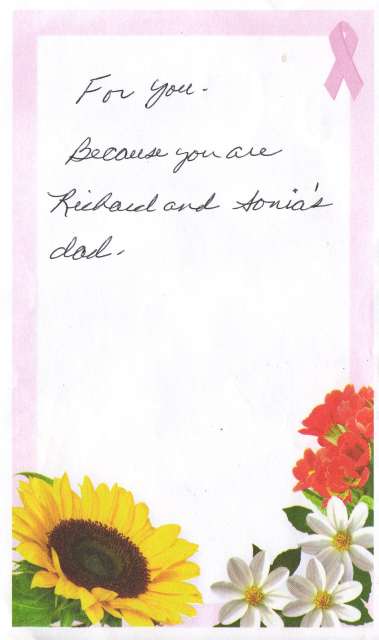 For you.
Because you are
Richard and Sonia's
dad.